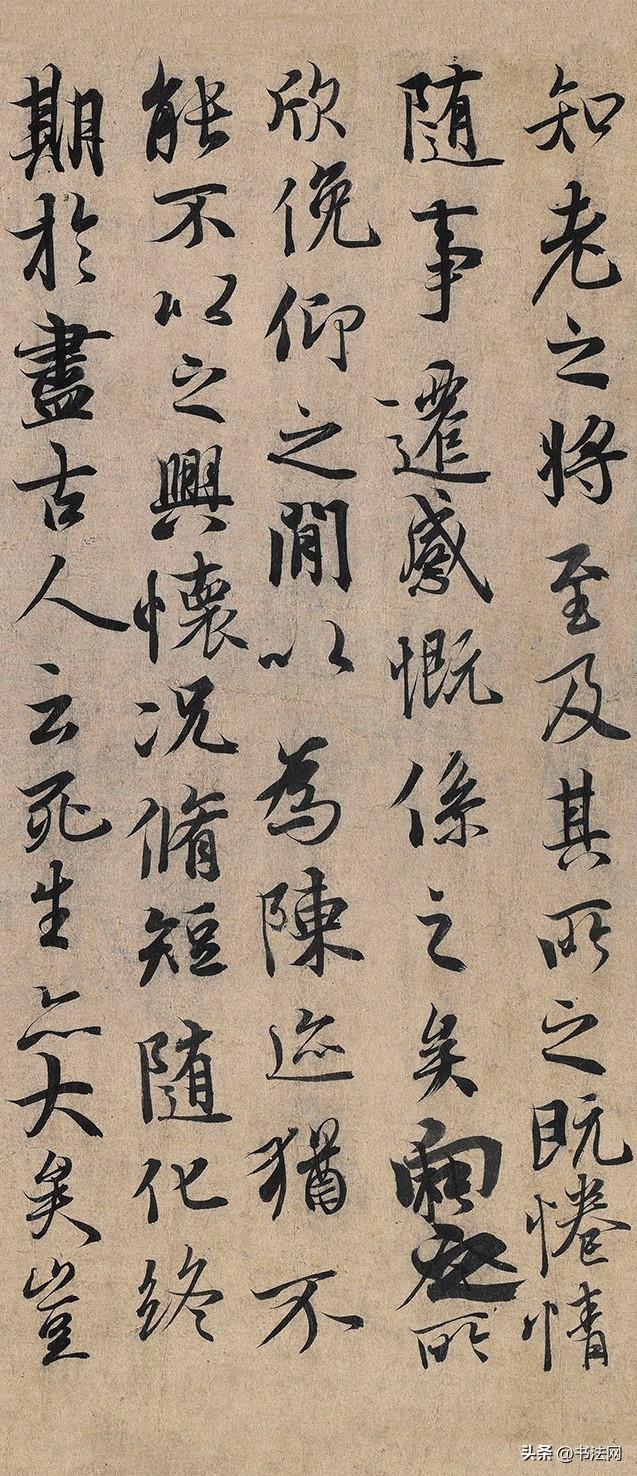 知老之将至及其所之既惓情
随事遷感慨係之矣向之所
欣俛仰之閒以為陳迹猶不
能不以之興懷况脩短随化終
期於盡古人云死生亦大矣豈
头条 @书法网